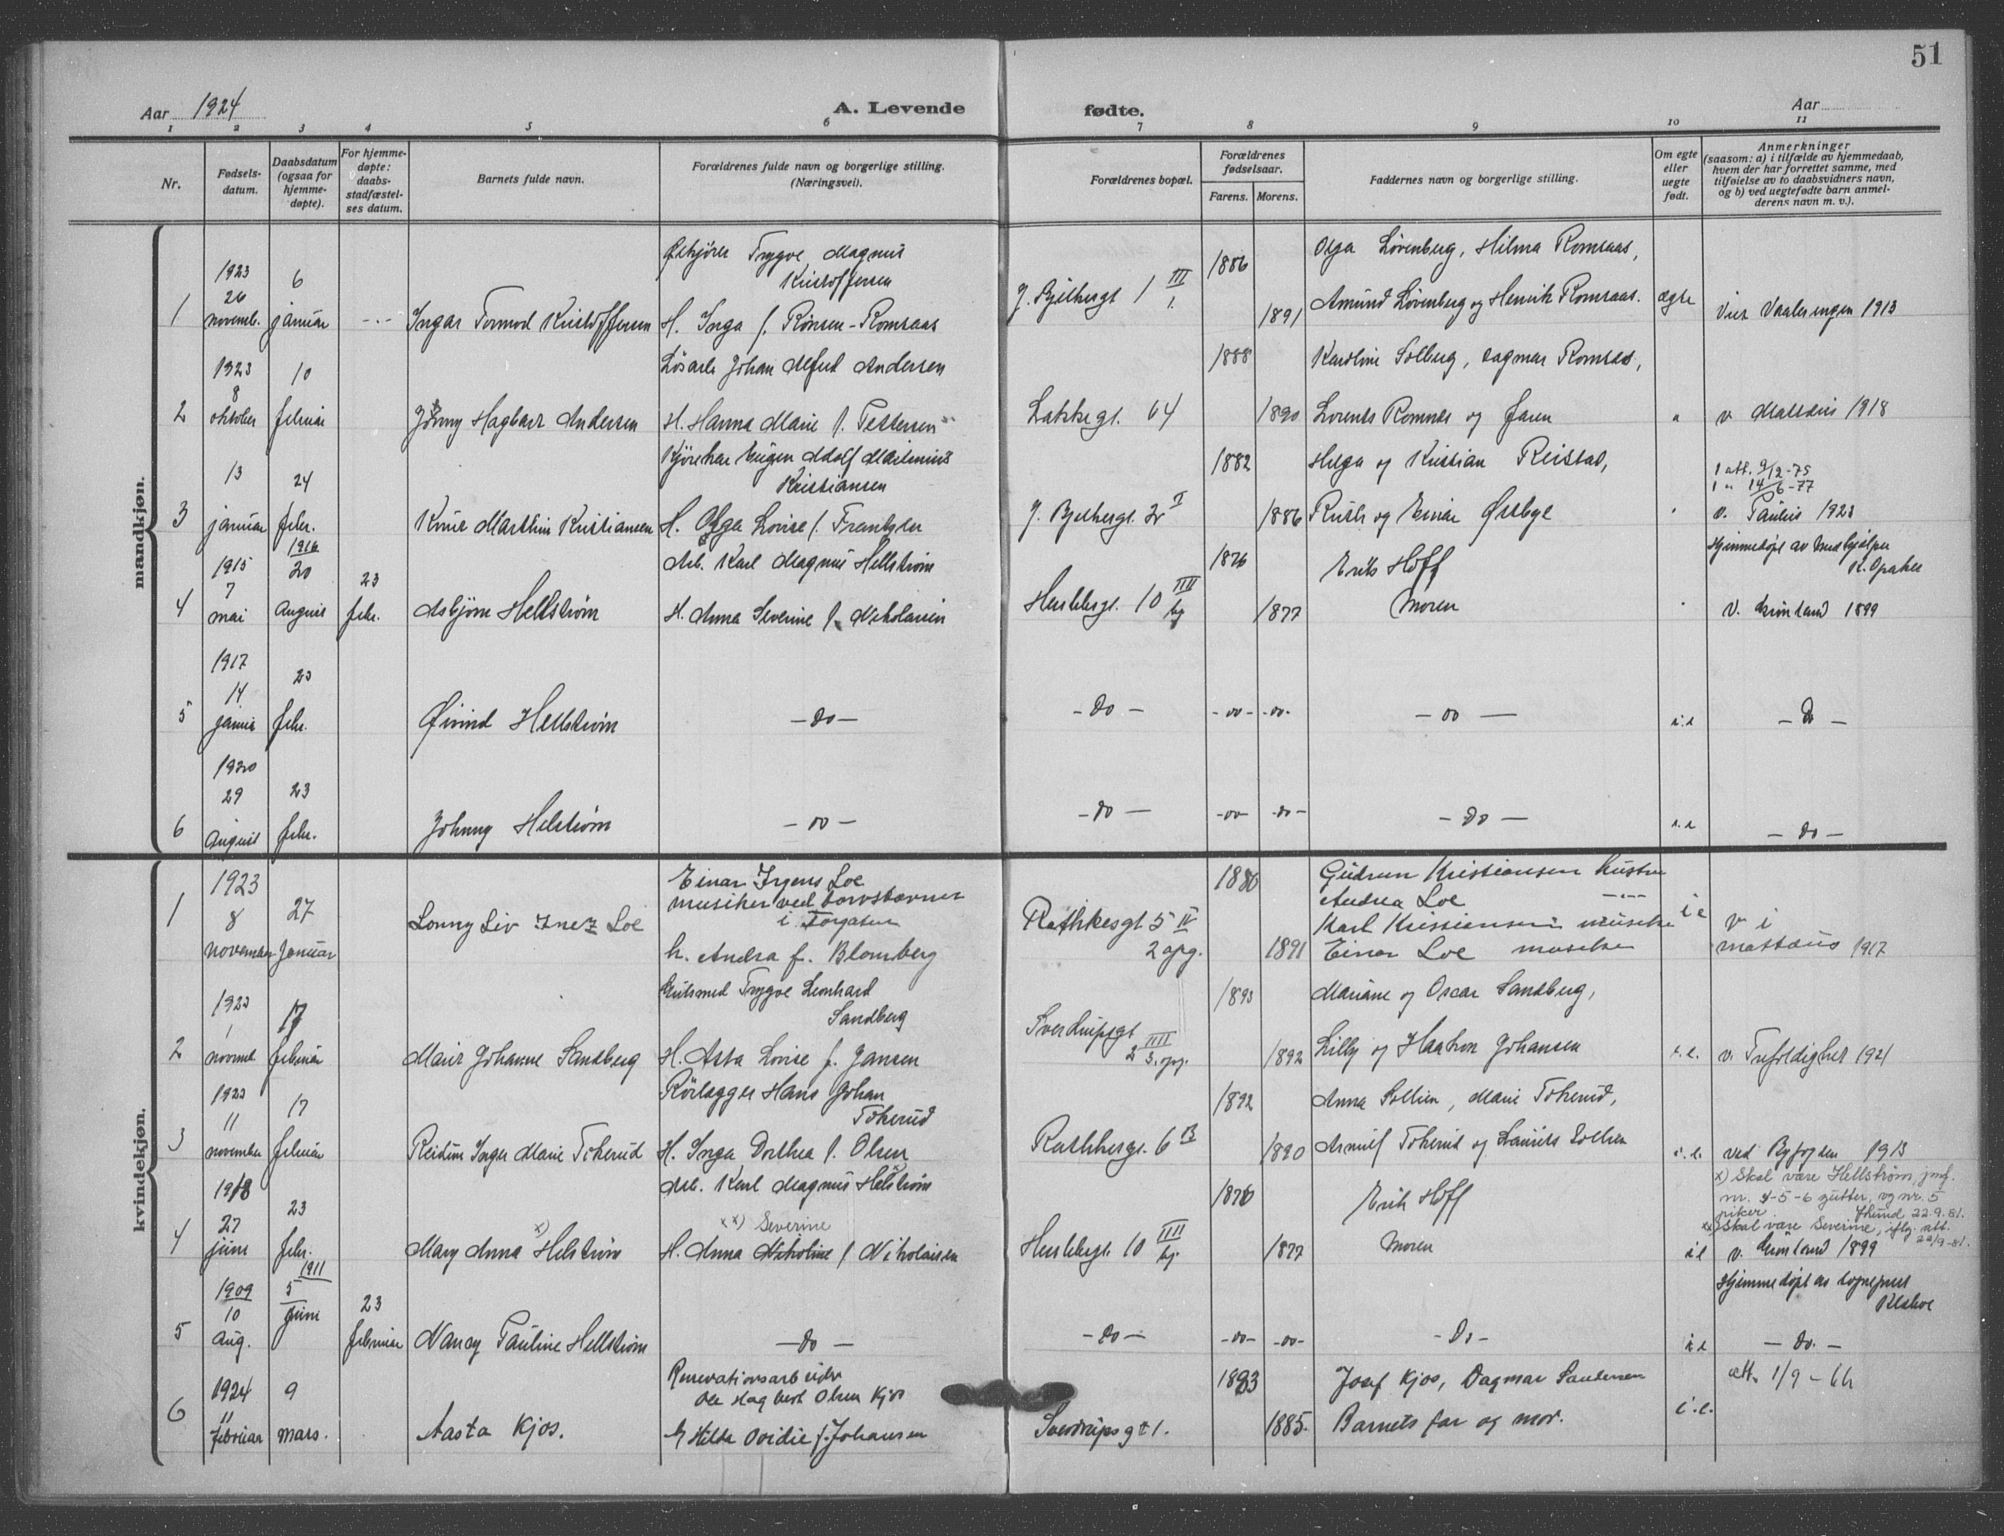 51
Aar 1924
A. Levende
fødte.
Aar
1 2 3 4 5 6 7 8 9 10 11
Nr.
Fødsels-
datum.
Daabsdatum
(ogsaa for
hjemme-
døpte).
For hjemme-
døpte:
daabs-
stadfæstel-
ses datum.
Barnets fulde navn.
Forældrenes fulde navn og borgerlige stilling.
(Næringsvei).
Forældrenes bopæl.
Forældrenes
fødselsaar.
Farens. Morens.
Faddernes navn og borgerlige stilling.
Om egte
eller
uegte
født.
Anmerkninger
(saasom: a) i tilfælde av hjemmedaab,
hvem der har forrettet samme, med
tilføielse av to daabsvidners navn,
og b) ved uegtefødte barn anmel-
derens navn m. v.).
mandkjøn.
1
1923
26
novemb.
6
januar
Ingar Tormod Kristoffersen
Trygve Magnus
Kristoffersen
H. Inga f. Rønsen-Romsaas
J. Bjelkesgt 1 III
1886
1891
Olga Løvenberg, Hilma Romsaas,
Amund Løvenberg og Henrik Romsaas.
ægte
Viet Vaalerengen 1913
2
1923
8
oktober
10
februar
Jonny Hagbart Andersen
Løsarb. Johan Alfred Andersen
H. Hanna Marie f. Pettersen
Lakkegt. 64
1888
1890
Karoline Solberg, Dagmar Romsås,
Lorents Romsås og faren
v. Mattæus 1918
3
13
januar
24
febr.
Knut Marthin Kristiansen
Kjørekar Eugen Adolf Maximius
Kristiansen
H. Olga Lovise f. Frantzen
J. Bjelkesgt. 2r I
1882
1886
Helga og Kristian Reistad,
Ruth og Einar Østbye
1 att. 9/2-75
1 " 14/6-77
v. Paulus 1923
4
1915
7
mai
1916
20
August
23
febr.
Asbjørn Hellstrøm
Arb. Karl Magnus Hellstrøm
H. Anna Severine f. Nikolaisen
Heslebergt. 10 IIII
1876
1877
Erik Hoff
Moren
Hjemmedøpt av Medhjelper
K. Opahle
V. Grønland 1899
5
1917
14
23
febr.
Øivind Hellstrøm
- do -
- do -
- do - - do -
- do -
i.e
- do -
6
1920
29
August
23
febr.
Johnny Helstrøm
- do -
- do -
- do - - do -
- do -
i.e
- do -
kvindekjøn.
1
1923
8
november
27
Januar
Lonny Liv Inez Loe
Einar Irgens Loe
musiker ved
i Torgaten
h. Andra f. Blomberg
Rathkesgt 5 IV
2 opg.
1880
1891
Gudrun Kristiansen hustru
Andrea Loe
Karl Kristiansen musiker
Einar Loe musiker
i e
v i
mattæus 1917
2
1923
1
novemb
17
februar
Marit Johanne Sandberg
Gulsmed Trygve Leonhard
Sandberg
H. Asta Lovise f. Jansen
Sverdrupsgt
2 IIII
3. opg.
1893
1892
Mariane og Oscar Sandberg,
Lilly og Haakon Johansen
i.e.
v. Trefoldighet 1921
3
1923
11
november
17
februar
Reidun Inger Marie Tokerud
Rørlægger Hans Johan
Tokerud
H. Inga Dorthea f. Olsen
Rathkesgt. 6 B
1892
1890
Anna Sollien, Marie Tokerud,
Arnulf Tokerud og Laurits Sollien
i.e.
ved Byfogden 1913
4
1918
27
juni
23
febr.
Mary Anna x) Helstrøm
Arb. Karl Magnus Helstrøm
xx) Severine
H. Anna Nikoline f. Nikolaisen
Heslebergt 10 IIII
1876
1877
Erik Hoff
Moren
i e
x) Skal være Hellstrøm, jmf.
nr. 4-5-6 gutter, og nr. 5
piker. 22.9.81.
xx) Skal være Severine, iflg. att.
22/9-81.
v. Grønland 1899
5
1909
10
Aug.
1911
5
Juni
23
februar
Nancy Pauline Hellstrøm
- do -
- do -
- do - - do -
- do -
i e
Hjemmedøpt av sogneprest
Klaboe
- do. -
6
1924
11
februar
9
mars.
Aasta Kjos.
Renovationsarbeider
Ole Hagbert Olsen Kjos
H Hilda Ovidie f. Johansen
Sverdrupsgt 1.
1883
1885.
Josef Kjos, Dagmar Sandersen
Barnets far og mor.
i.e.
att. 1/9-66